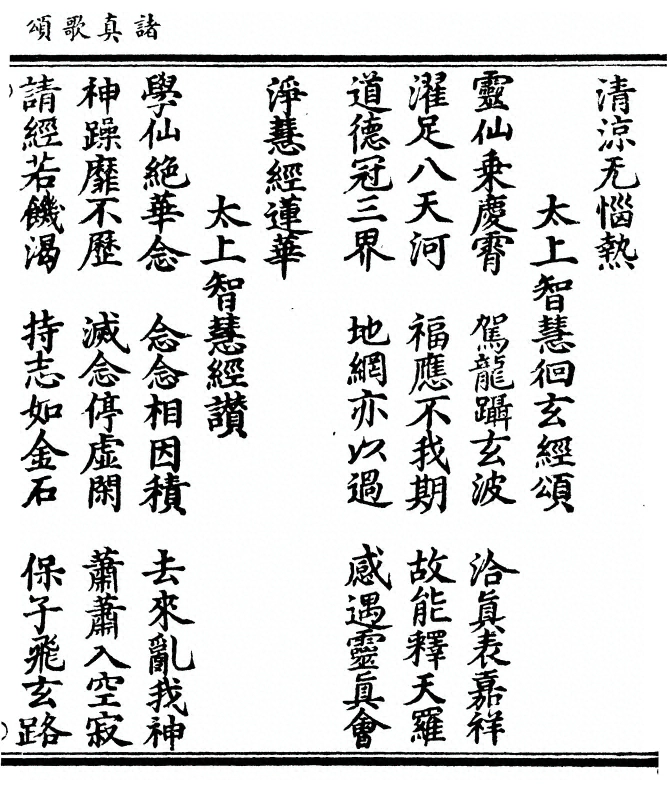 諸真歌頌
清涼无惱熱
太上智慧徊玄經頌
靈仙乗慶霄 駕龍躡玄波 洽真表嘉祥
濯足八天河 福應不我期 故能釋天羅
道德冠三界 地網亦以過 感遇靈真會
淨慧經蓮華
太上智慧經讃
學仙絶華念 念念相因積 去來亂我神
神躁靡不歷 滅念停虛閑 蕭蕭入空寂
請經若饑渴 持志如金石 保子飛玄路